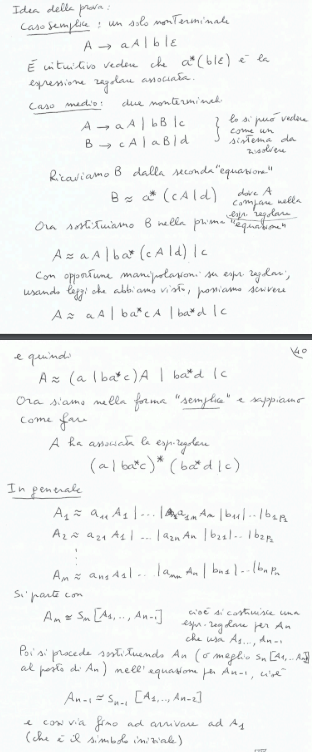 Idea della prova:
Caso semplice: un solo nonterminale
A → aA | b | ε
È intuitivo vedere che a*(b|ε) è la
espressione regolare associata.
Caso medio: due nonterminal
A → aA | bB | c } lo si può vedere
B → cA | aB | d come un sistema da risolvere
Ricaviamo B dalla seconda "equazione"
B ≈ a* (cA | d) dove A
compare nella
espr regolare
Ora sostituiamo B nella prima "equazione"
A ≈ aA | ba* (cA | d) | c
Con opportune manipolazioni su espr regolari,
usando leggi che abbiamo visto, possiamo scrivere
A ≈ aA | ba*cA | ba*d | c
e quindi
40
A ≈ (a | ba*c)A | ba*d | c
Ora siamo nella forma "semplice" e sappiamo
come fare
A ha associata la espr. regolare
(a | ba*c)* (ba*d | c)
In generale
A1 ≈ a11 A1 | ... | a1n An | b11 | .. | b1p1
A2 ≈ a21 A1 | ... | a2n An | b21 | .. | b2p2
⋮
An ≈ an1 A1 | ... | ann An | bn1 | .. | bnpn
Si parte con
An ≈ Sn [A1, .., An-1] cioè si costruisce una
espr. regolare per An
che usa A1, .., An-1
Poi si procede sostituendo An (o meglio Sn[A1,..An]
al posto di An) nell'equazione per An-1, cioè
An-1 ≈ Sn-1 [A1, .., An-2]
e così via fino ad arrivare ad A1
(che è il simbolo iniziale)